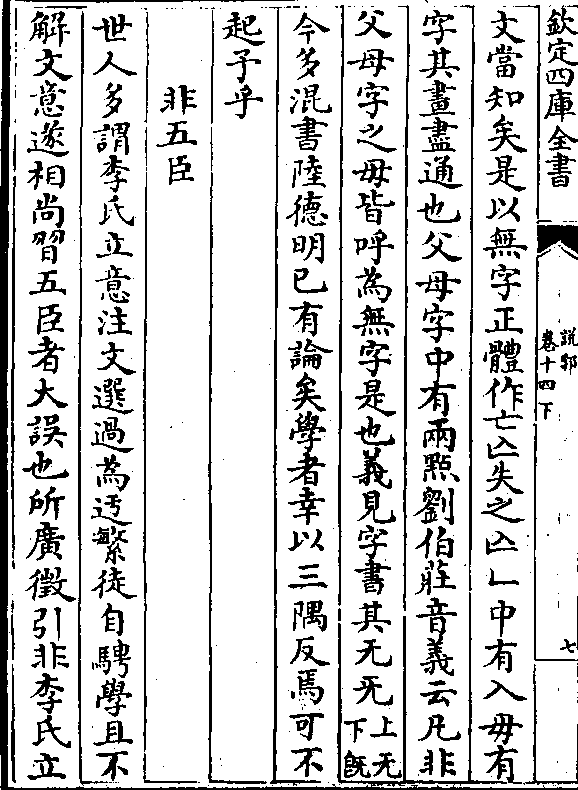 欽定四庫全書
説郛
卷十四下
七
文當知矣是以無字正體作亡亾失之亾𠃊中有入毋有
字其畫盡通也父母字中有兩㸃劉伯莊音義云凡非
父母字之毋皆呼為無字是也義見字書其无旡上无下旣
今多混書陸德明已有論矣學者幸以三隅反焉可不
起予乎
非五臣
世人多謂李氏立意注文選過為迃繁徒自騁學且不
解文意遂相尚習五臣者大誤也所廣徵引非李氏立